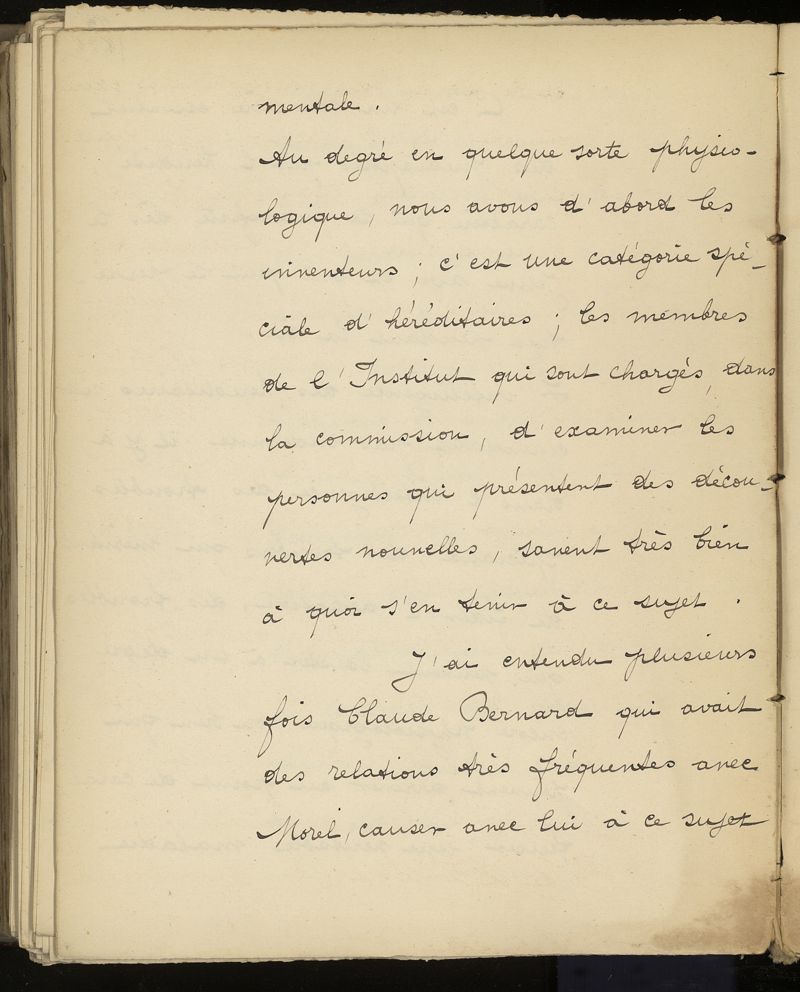 mentale.
Au degré en quelque sorte physio-
logique, nous avons d'abord les
inventeurs; c'est une catégorie spé-
ciale d'héréditaires; les membres
de l'Institut qui sont chargés, dans
la commission, d'examiner les
personnes qui présentent des décou-
vertes nouvelles, savent très bien
à quoi s'en tenir à ce sujet.
J'ai entendu plusieurs
fois Claude Bernard qui avait
des relations très fréquentes avec
Morel, causer avec lui à ce sujet